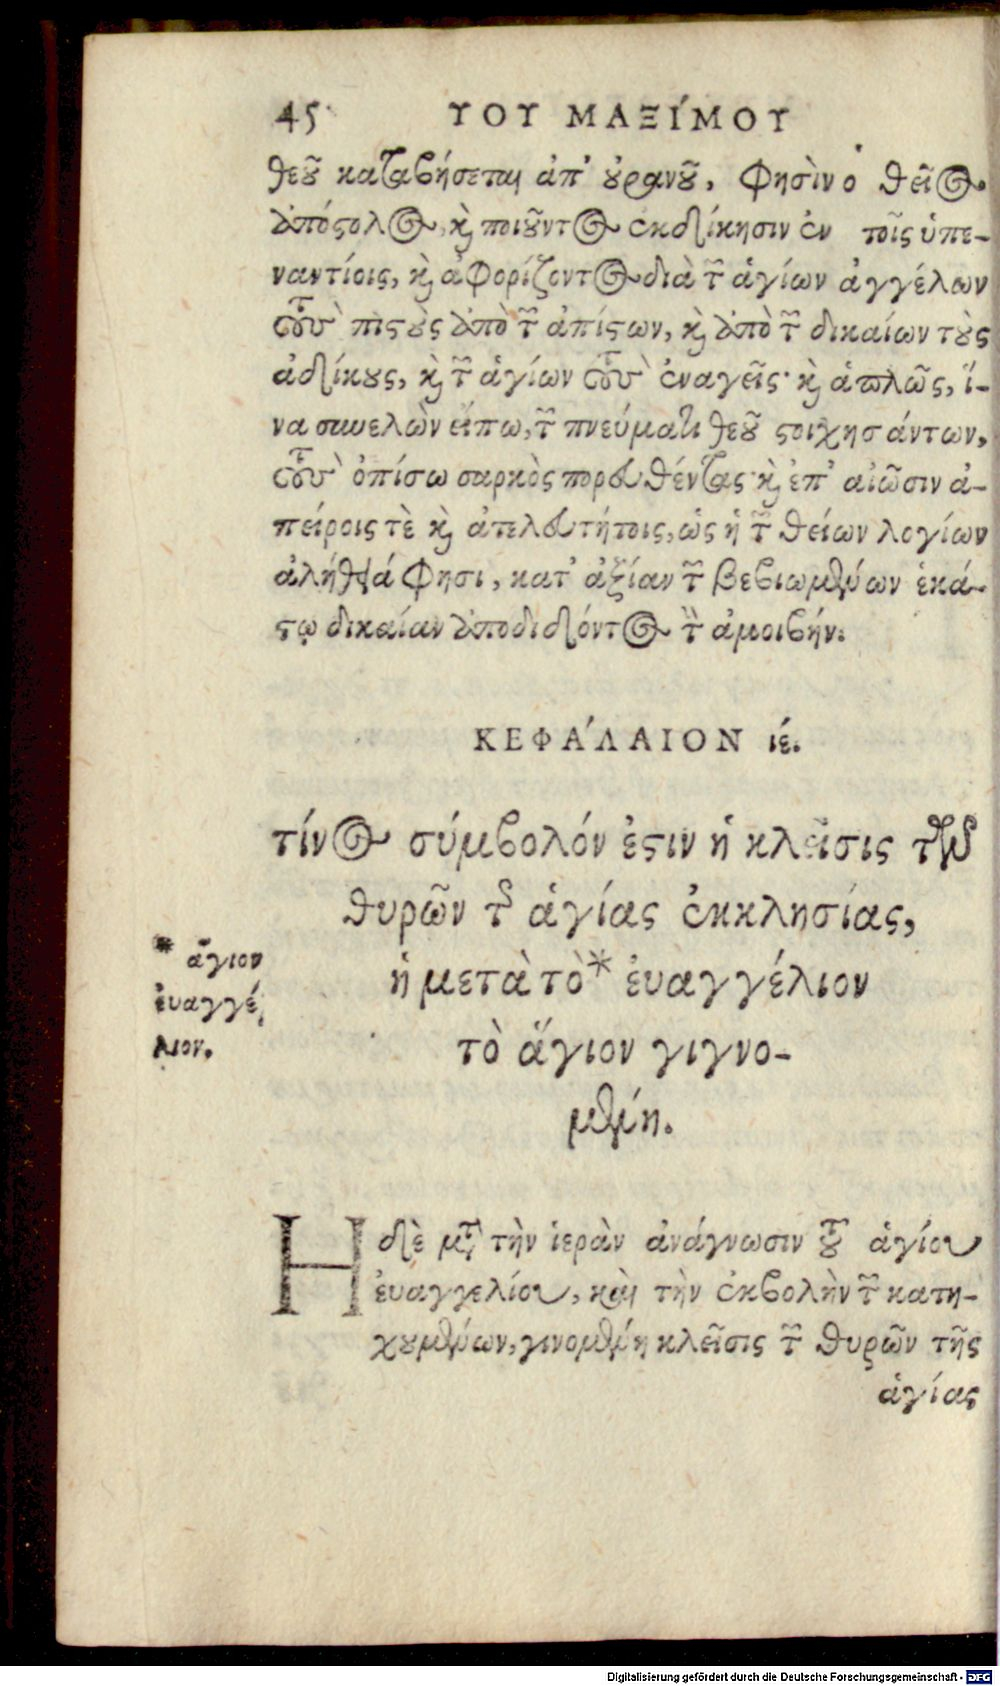 45 ΥΟΥ ΜΑΞΊΜΟΥ
θεοῦ καταβήσεται ἀπ' οὐρανοῦ, φησὶν ὁ θεῖος
ἀπόστολος, καὶ ποιοῦντος ἐκδίκησιν ἐν τοῖς ὑπε-
ναντίοις, καὶ ἀφορίζοντος διὰ τῶν ἁγίων ἀγγέλων
τοὺς πιστοὺς ἀπὸ τῶν ἀπίστων, καὶ ἀπὸ τῶν δικαίων τοὺς
ἀδίκους, καὶ τῶν ἁγίων τοὺς ἐναγεῖς· καὶ ἁπλῶς, ἵ-
να συνελὼν εἴπω, τῶν πνεύματι θεοῦ στοιχησάντων,
τοὺς ὀπίσω σαρκὸς πορευθέντας· καὶ ἐπ' αἰῶσιν ἀ-
πείροις τὲ καὶ ἀτελευτήτοις, ὡς ἡ τῶν θείων λογίων
ἀλήθειά φησι, κατ' ἀξίαν τῶν βεβιωμένων ἑκά-
στῳ δικαίαν ἀποδιδόντος τὴν ἀμοιβήν.
ΚΕΦΆΛΑΙΟΝ ιέ.
τίνος σύμβολόν ἐστιν ἡ κλεῖσις τῶν
θυρῶν τῆς ἁγίας ἐκκλησίας,
ἡ μετὰ τὸ* ἐυαγγέλιον
τὸ ἅγιον γιγνο-
μένη.
* ἅγιον
ἐυαγγέ,
λιον.
Η δὲ μετὰ τὴν ἱερὰν ἀνάγνωσιν τοῦ ἁγίου
ἐυαγγελίου, καὶ τὴν ἐκβολὴν τῶν κατη-
χουμένων, γινομένη κλεῖσις τῶν θυρῶν τῆς
ἁγίας
Digitalisierung gefördert durch die Deutsche Forschungsgemeinschaft - DFG